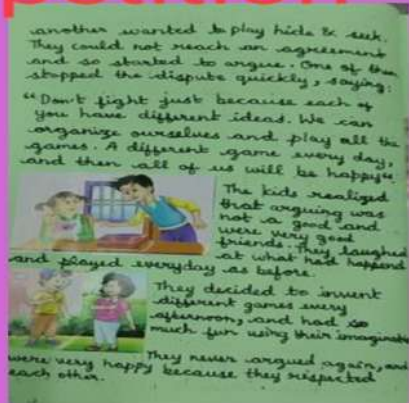 another wanted to play hide & seek.
They could not reach an agreement
and so started to argue. One of them
stopped the dispute quickly, saying:
"Don't fight just because each of
you have different ideas. We can
organize ourselves and play all the
games. A different game every day,
and then all of us will be happy"
The kids realized
that arguing was
not a good and
were very good
friends. They laughed
at what had happend
and played everyday as before.
They decided to invent
different games every
afternoon, and had so
much fun using their
They never argued again, and
were very happy because they respected
each other.